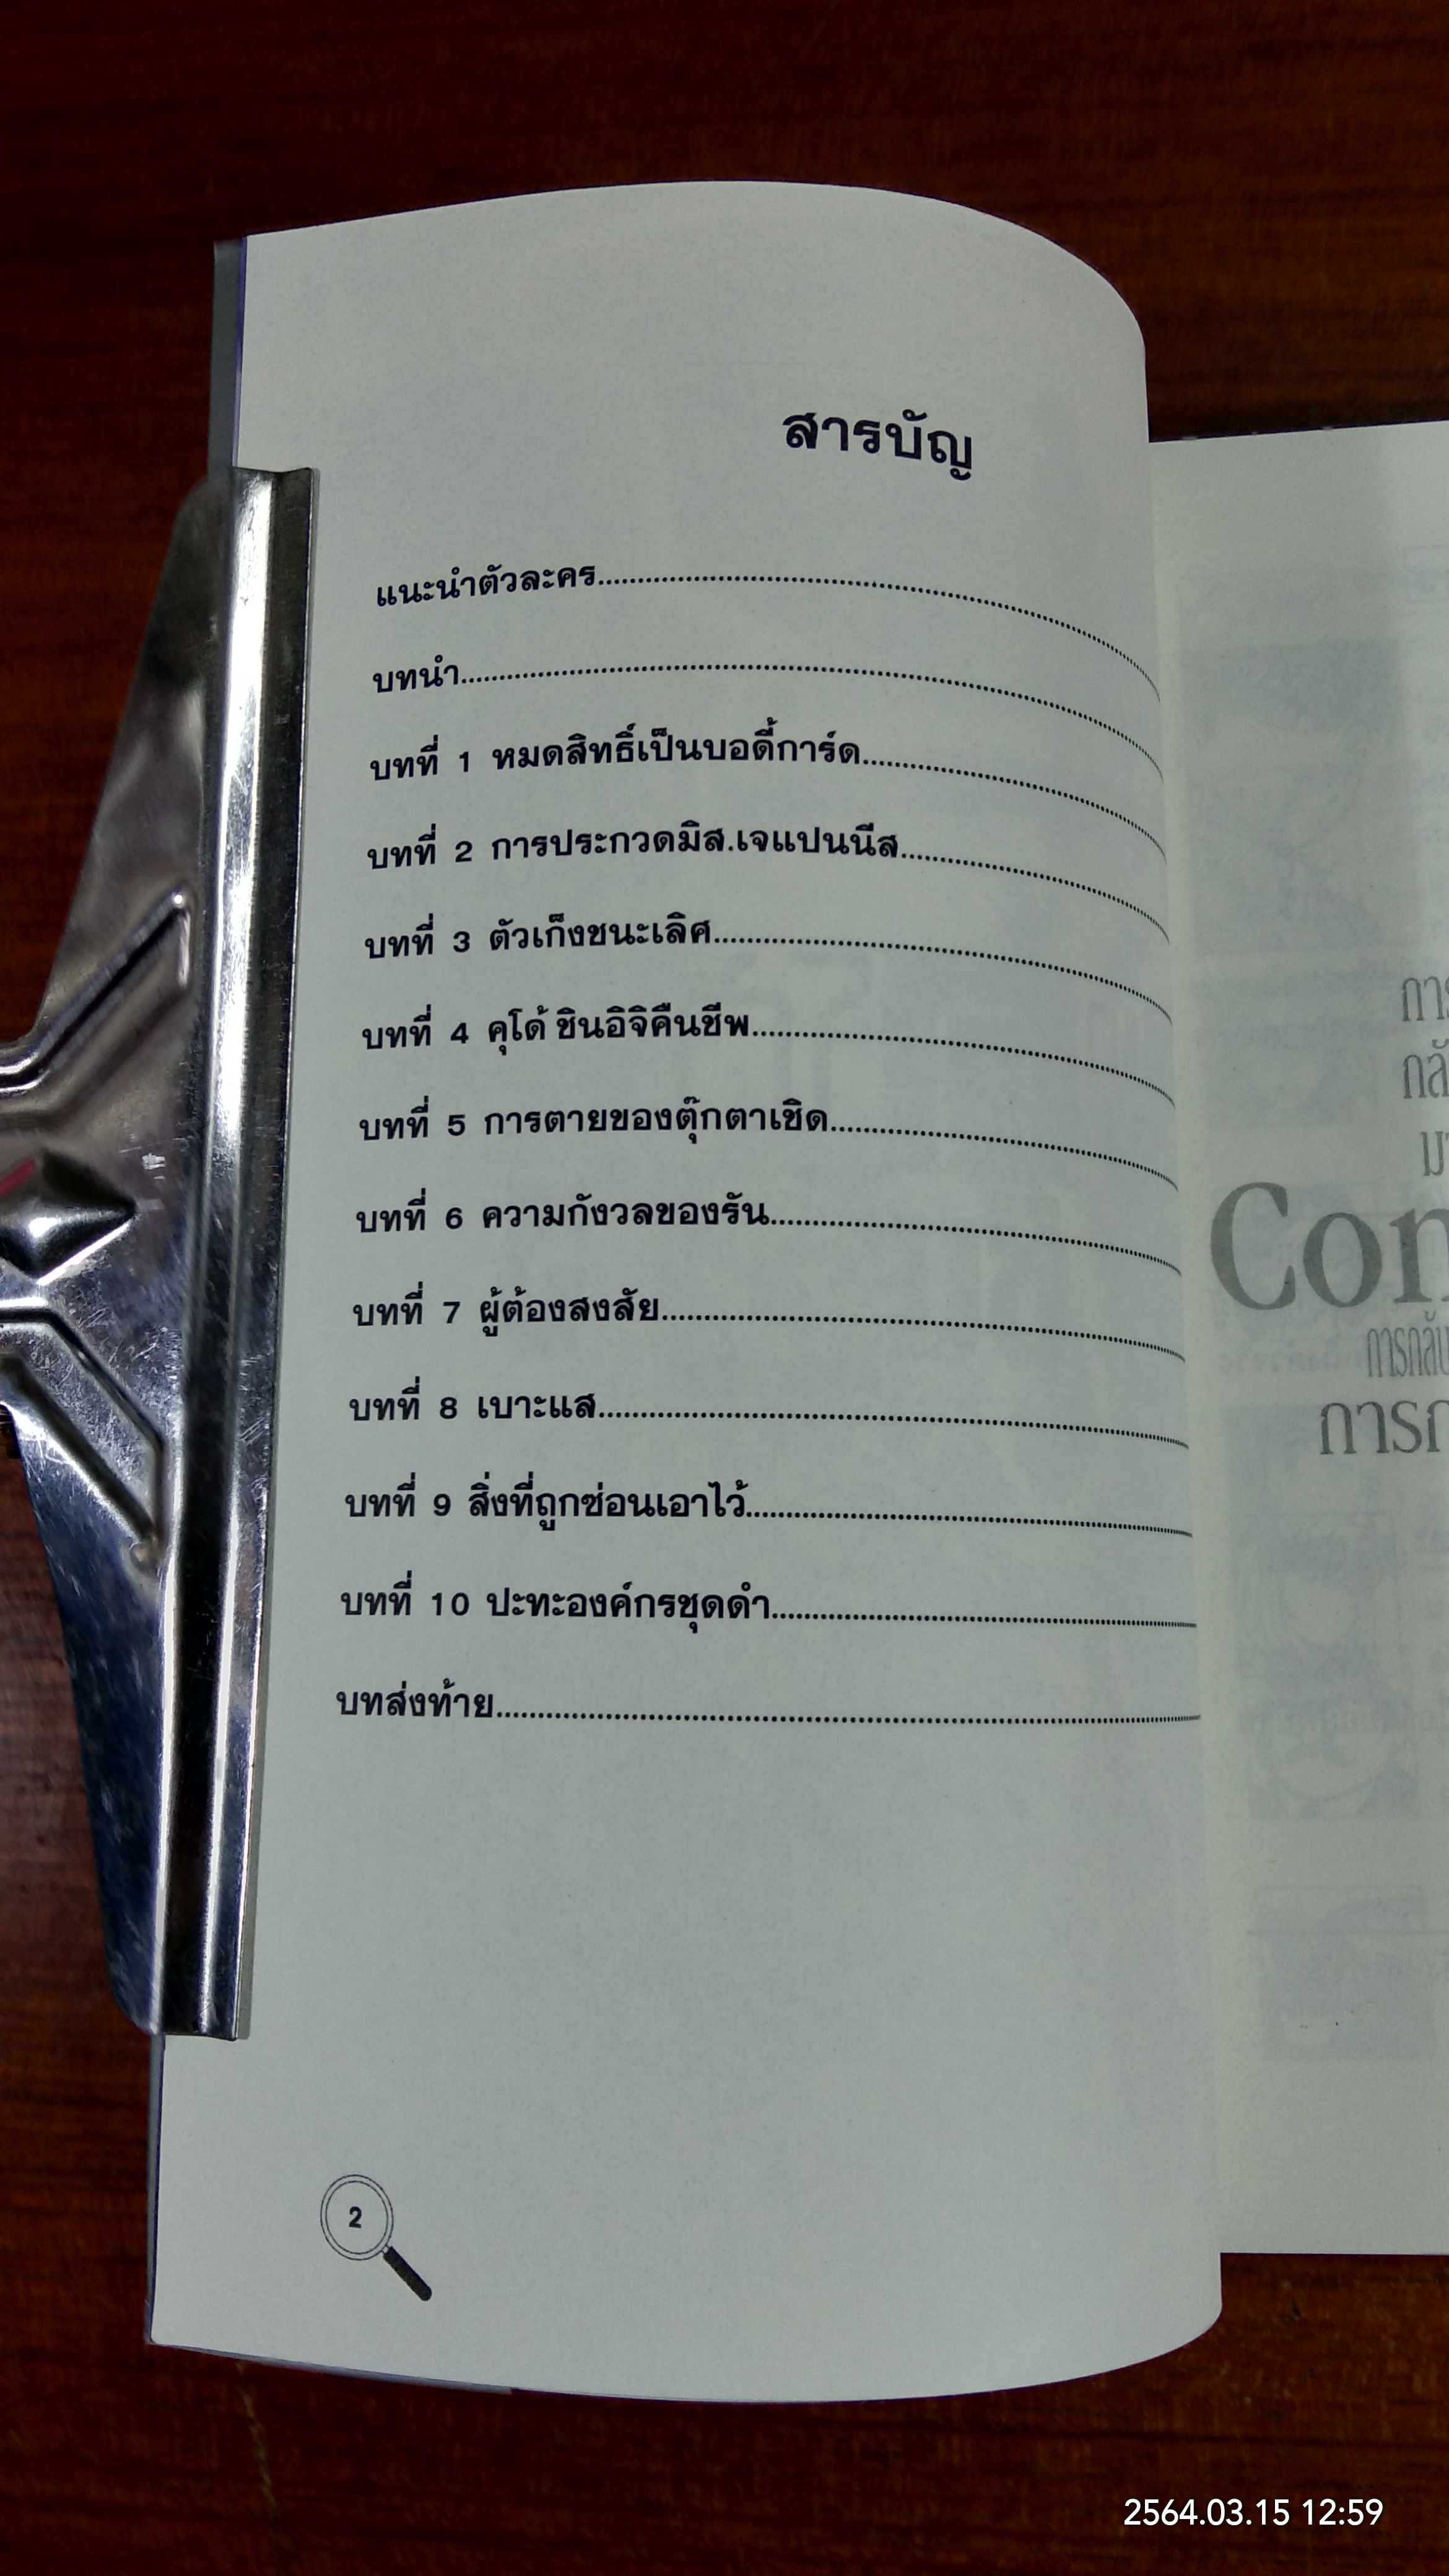 สารบัญ
แนะนำตัวละคร
บทนำ
บทที่ 1 หมดสิทธิ์เป็นบอดี้การ์ด
บทที่ 2 การประกวดมิส.เจแปนนีส
บทที่ 3 ตัวเก็งชนะเลิศ
บทที่ 4 คุโด้ ชินอิจิคืนชีพ
บทที่ 5 การตายของตุ๊กตาเชิด
บทที่ 6 ความกังวลของรัน
บทที่ 7 ผู้ต้องสงสัย
บทที่ 8 เบาะแส
บทที่ 9 สิ่งที่ถูกซ่อนเอาไว้
บทที่ 10 ปะทะองค์กรชุดดำ
บทส่งท้าย
2
Con
2564.03.15 12:59